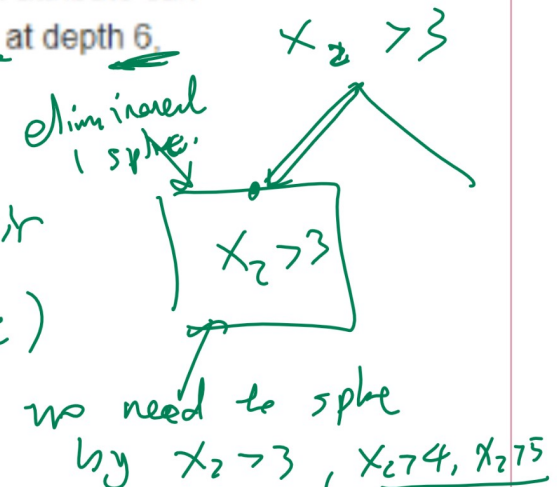 at depth 6,
x₂ > 3
eliminated
1 splite.
ir
X₂ > 3
)
no need to splite
by X₂ > 3, X₂ > 4, X₂ > 5